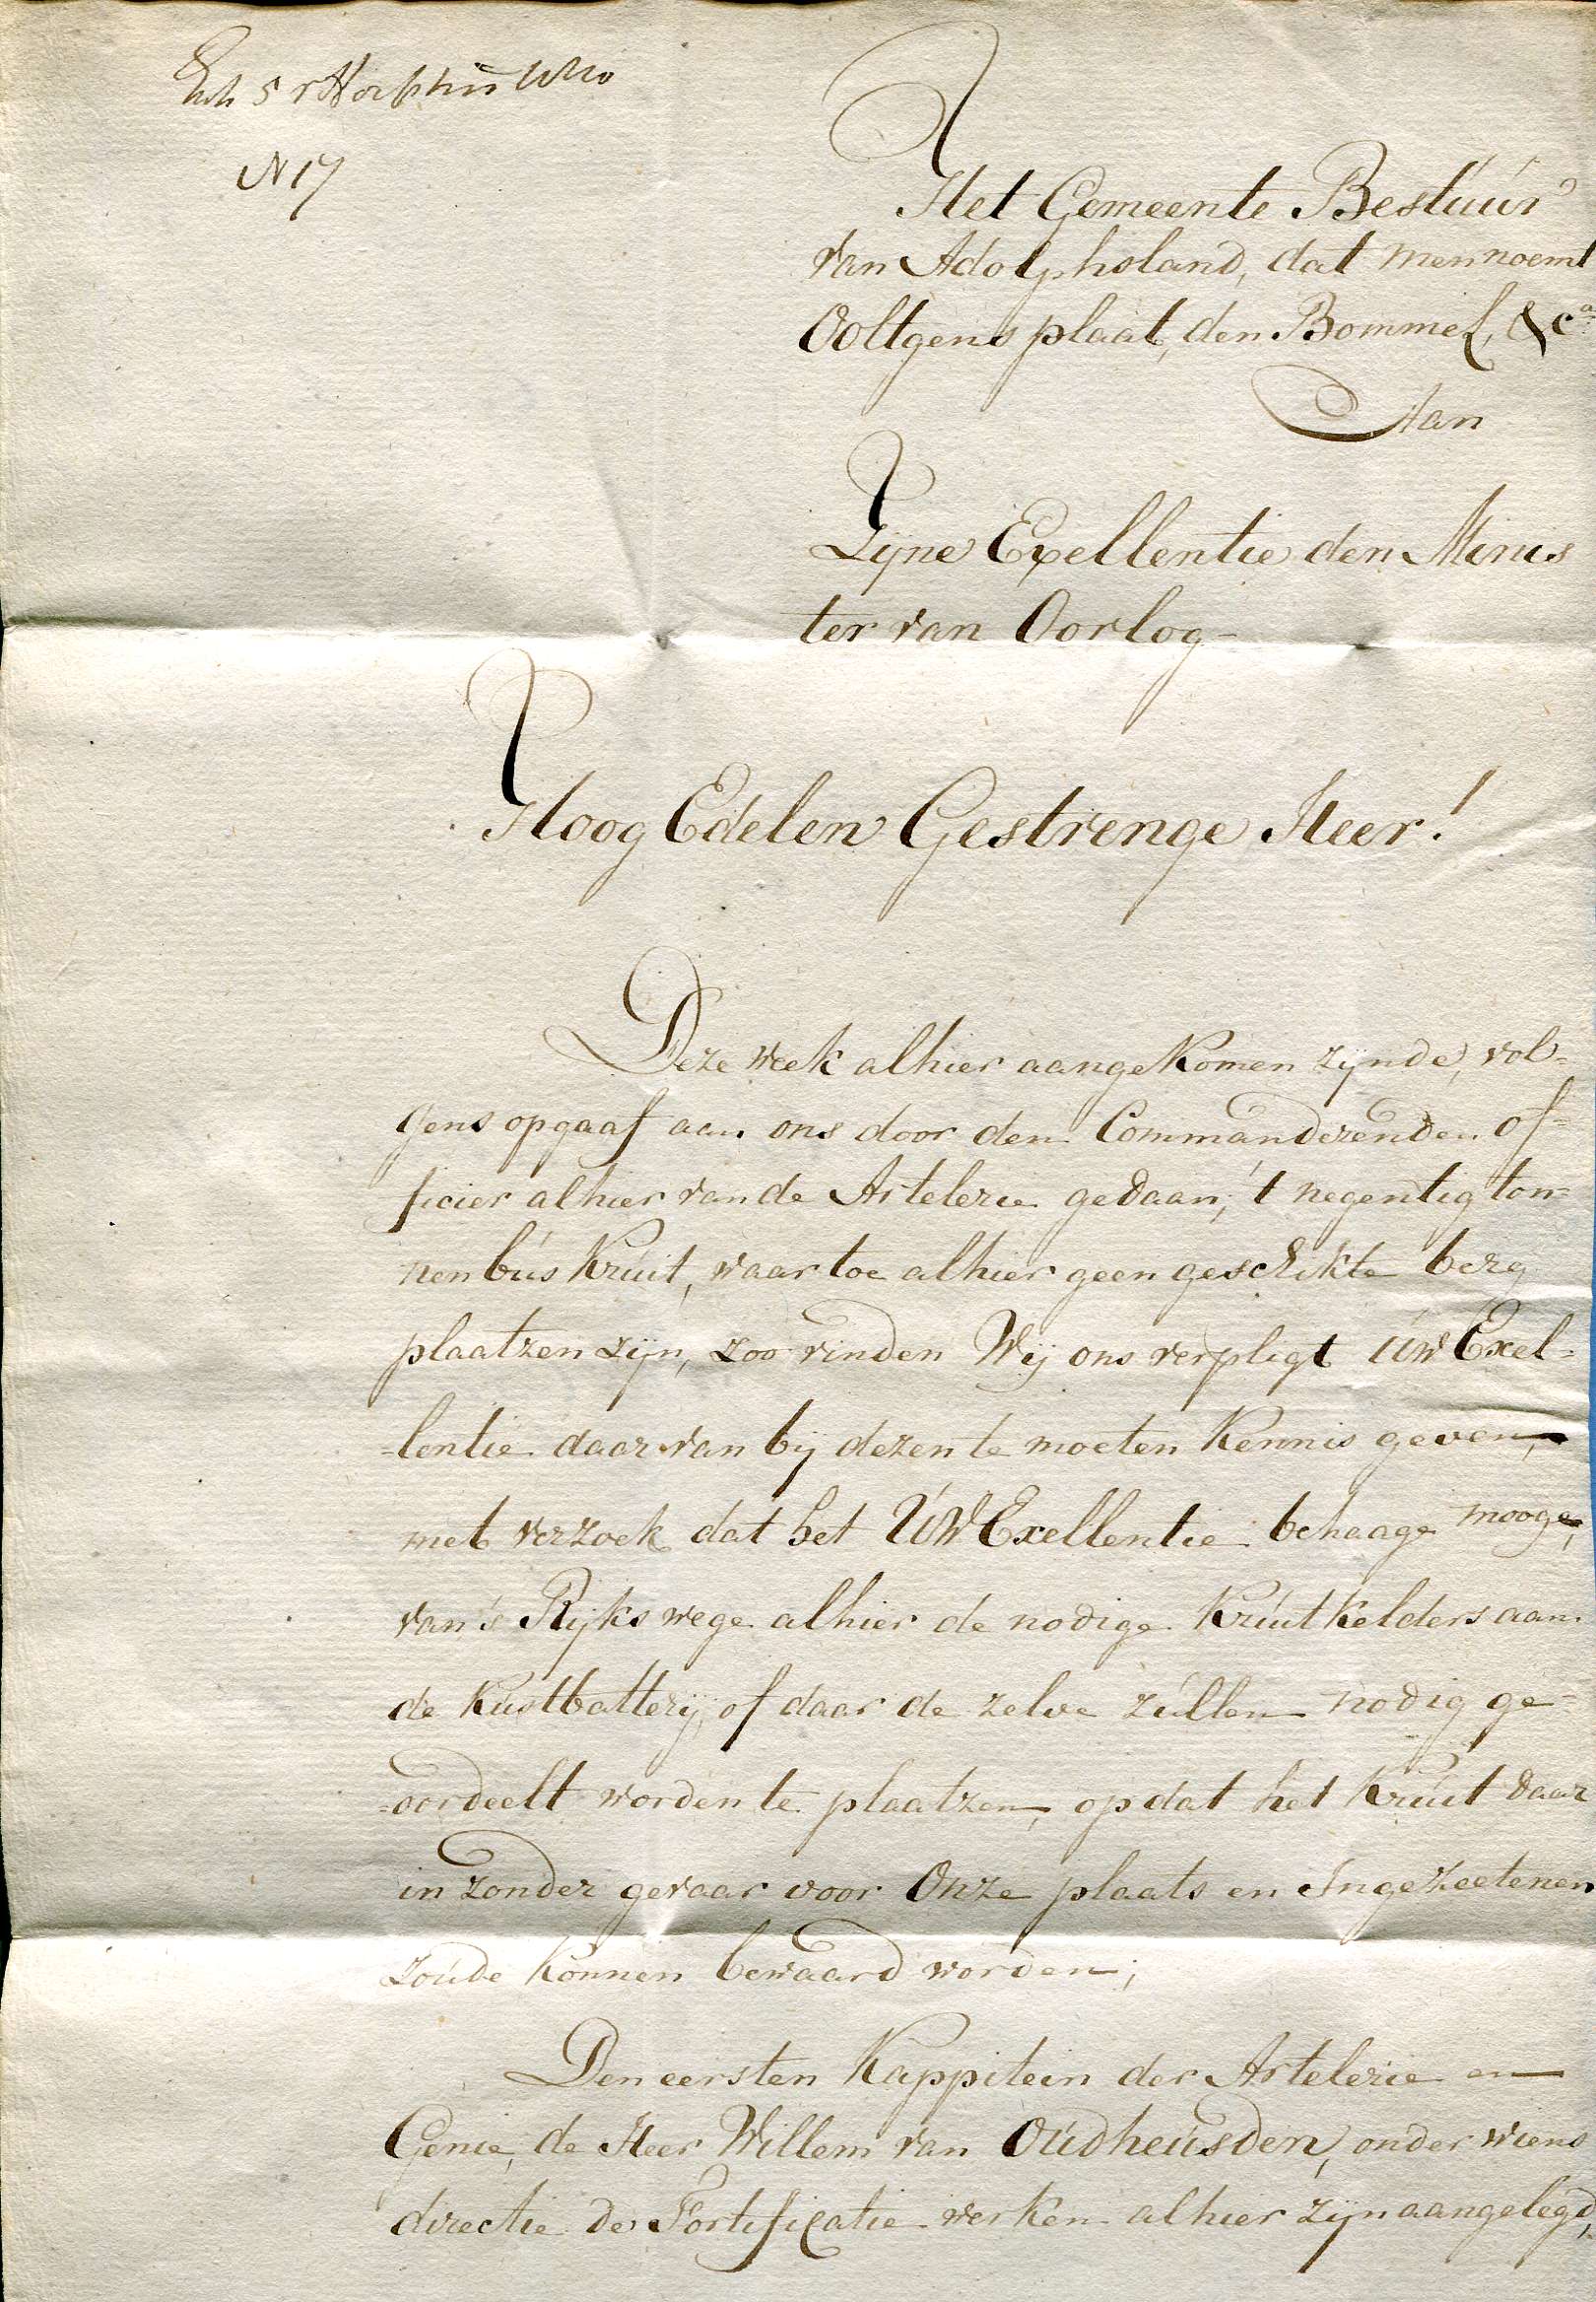 Exh 5
N 17
Het Gemeente Bestúúr
van Adolphsland, dat men noemt
Ooltgensplaat, den Bommel, &ca
Aan
Zijne Exellentie den Minis
ter van Oorlog-
Hoog Edelen Gestrenge Heer!
Deze week alhier aangekomen zijnde, vol=
gens opgaaf aan ons door den Commanderenden of=
ficier alhier van de Artelerie gedaan, 't negentig ton=
nen bús Krúit, waar toe alhier geen geschikte berg
plaatzen zijn, zoo vinden Wij ons verpligt úw Exel=
=lentie daar van bij dezen te moeten Kennis geven,
met verzoek dat het ÚW Exellentie behaage mooge,
van's Rijks wege alhier de nodige Krúit Kelders aan
de Kústbatterij, of daar de zelve zúllen nodig ge=
=oordeelt worden te plaatzen, op dat het Krúit daar
in zonder gevaar voor Onze plaats en Ingezeetenen
zoúde Konnen bewaard worden;
Den eersten Kappitein der Artelerie en
Genie, de Heer Willem van Oúdheúsden, onder wiens
directie de Fortificatie werken alhier zijn aangelegd,